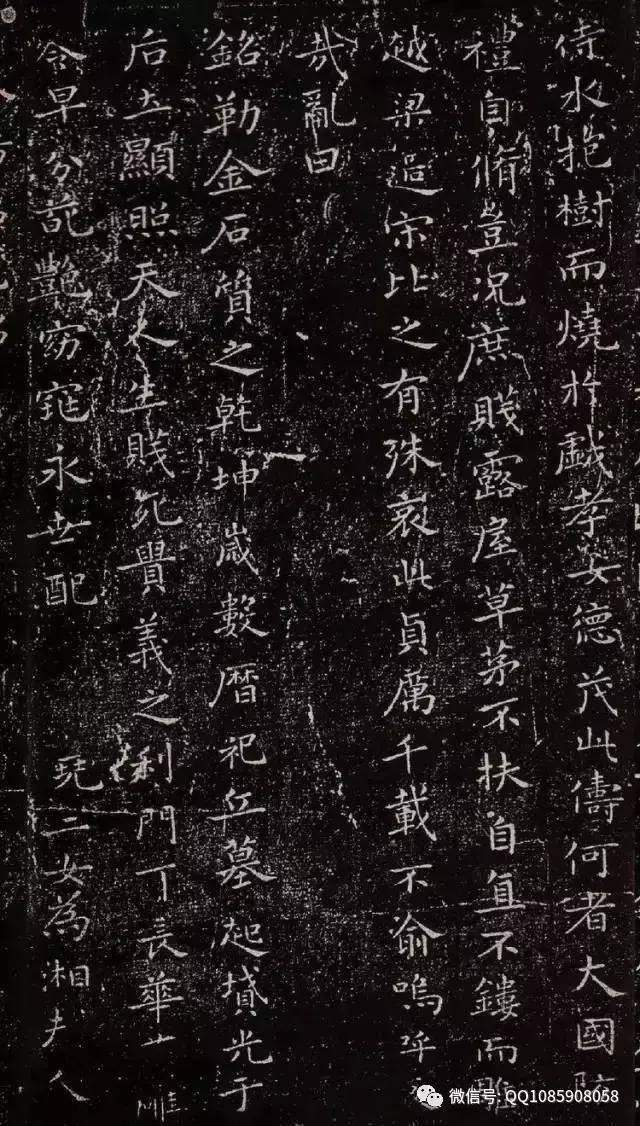 待水抱樹而燒於戲孝女德茂此儔何者大國防
禮自脩豈況庶賤露屋草茅不扶自直不鏤而雕
越梁過宋比之有殊哀此貞厲千載不俞嗚呼
哉亂曰
銘勒金石質之乾坤歲數曆祀丘墓起墳光于
后土顯照天人生賤死貴義之利門華
令早分葩艷窈窕永世配 堯二女為湘夫人
微信号: QQ1085908058